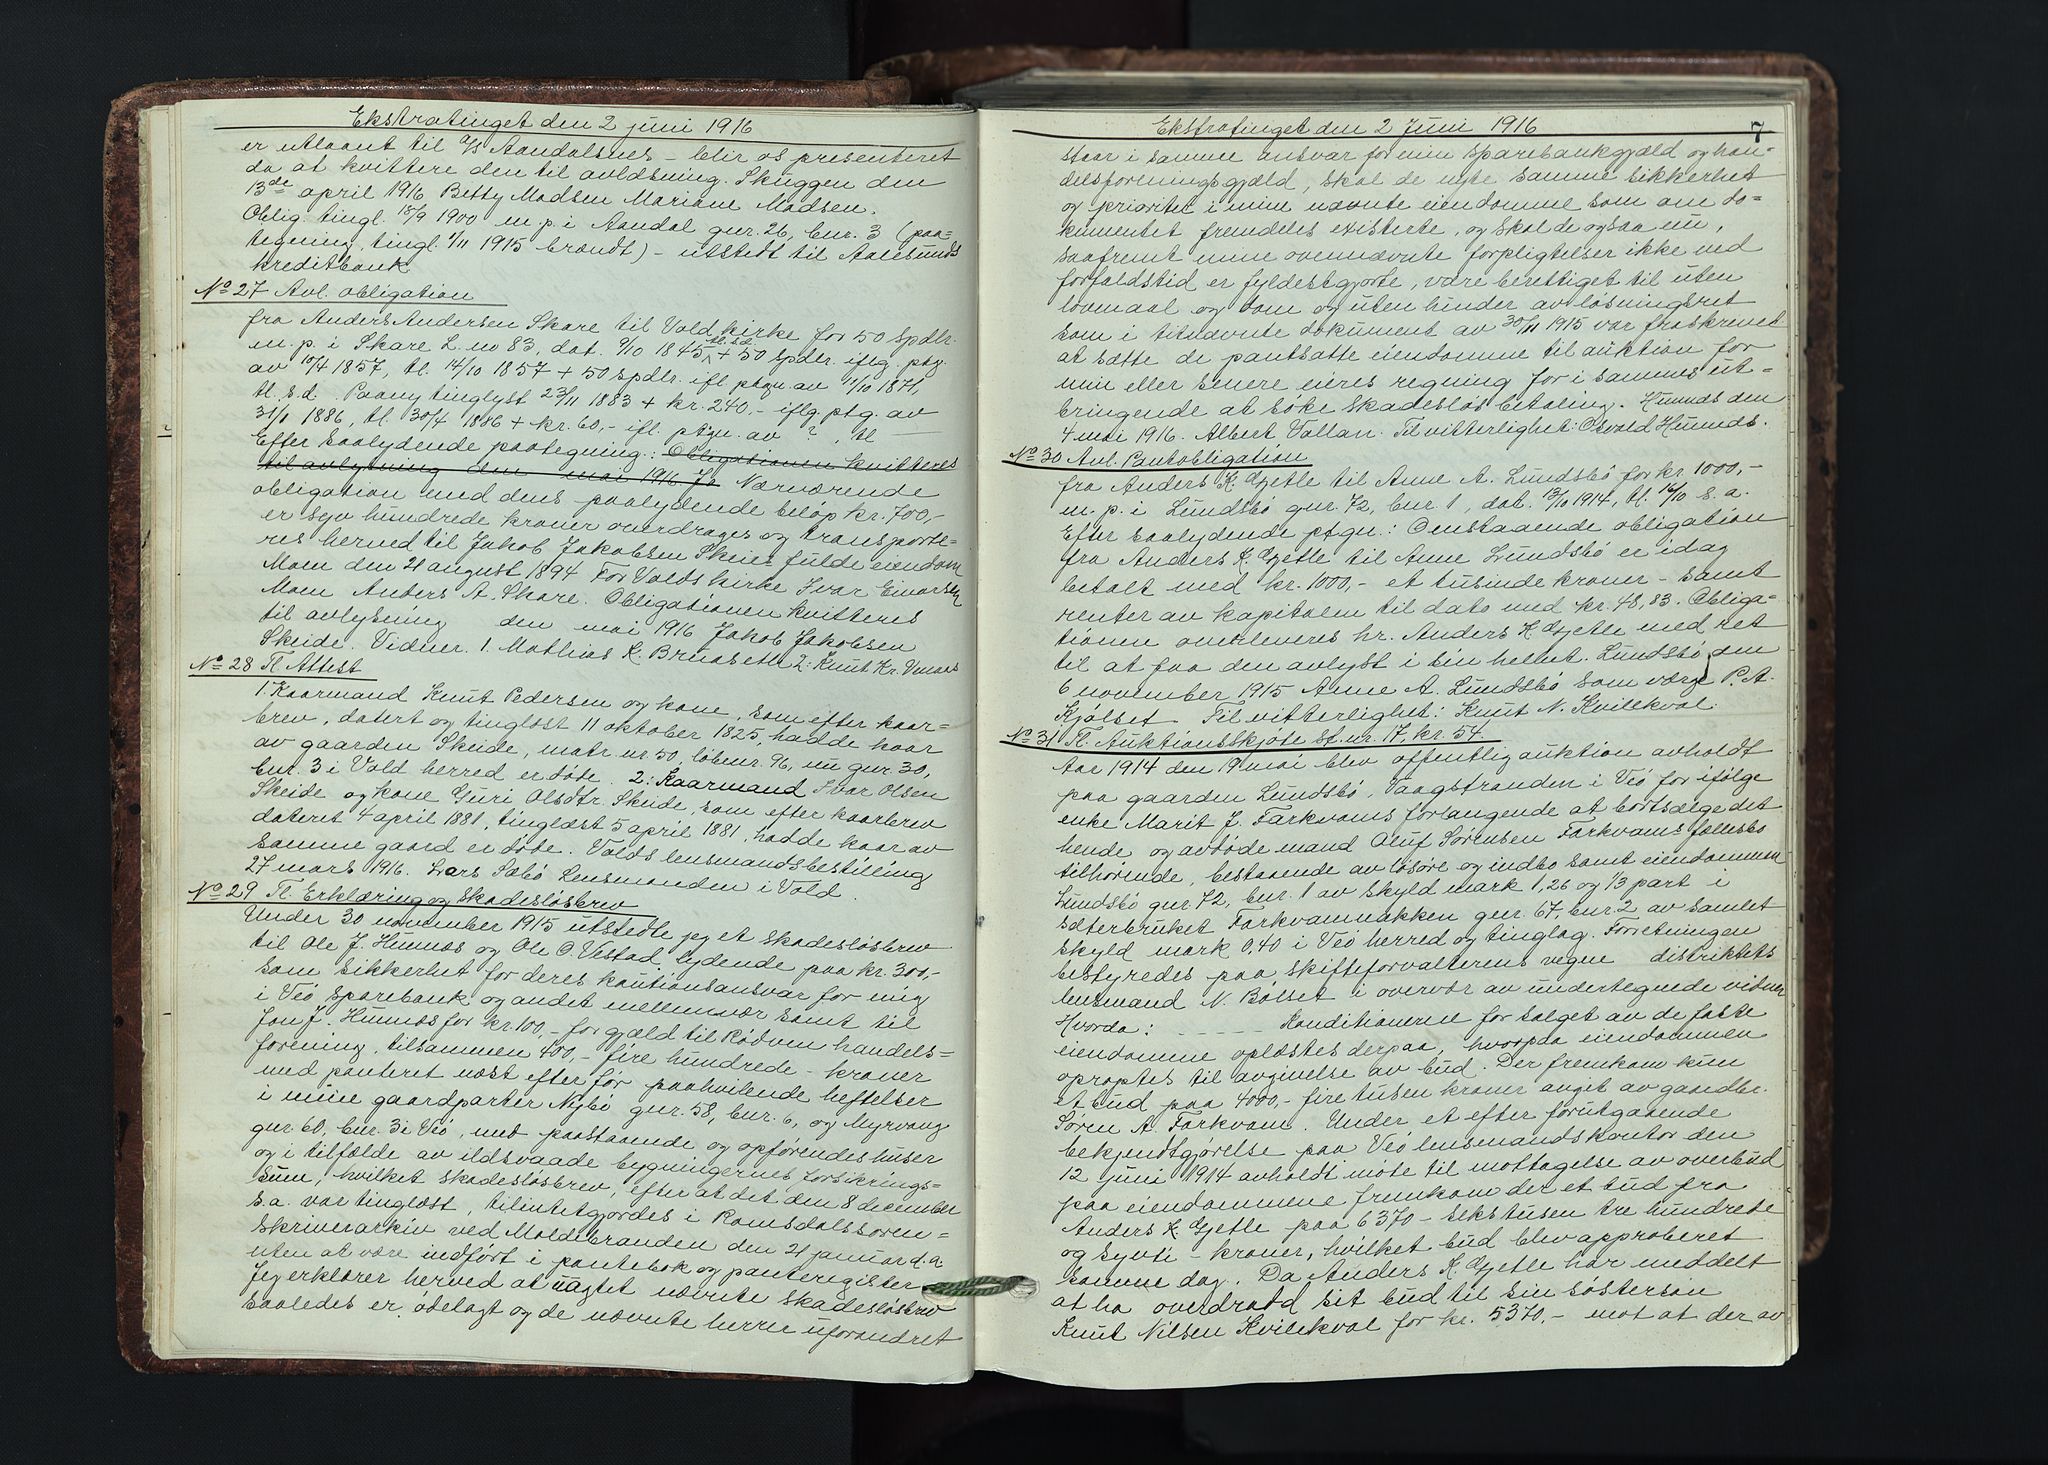 Ekstratinget den 2 juni 1916
er utlaant til A/S Aandalsnes – blir os presenteret
da at kvittere den til avløsning. Skuggen den
13de april 1916 Betty Madsen Mariane Madsen.
Oblig. tingl. 15/9 1900 m. p. i Aandal gnr. 26, bnr. 3 (paa=
tegning tingl. 1/11 1915 brændt) – utstedt til Aalesunds
kreditbank
No 27 Avl. obligation
fra Anders Andersen Skare til Vold kirke for 50 spdlr.
m. p. i Skare L. no 83, dat. 9/10 1845, tl. s.d. + 50 spdlr. iflg. ptg.
av 10/4 1857, tl. 14/10 1857 + 50 spdlr. ifl ptgn. av 11/10 1871,
tl. s. d. Paany tinglyst 23/11 1883 + kr. 240,- iflg. ptg. av
31/1 1886, tl. 30/4 1886 + kr. 60,- ifl. ptgn. av ? , tl
Efter saalydende paategning: Obligationen kvitteres
til avlysning den mai 1916 Ja Nærværende
obligation med dens paalydende beløp kr. 700,-
er syv hundrede kroner overdrages og transporte=
res herved til Jakob Jakobsen Skeies fulde eiendom
Moen den 21 august 1894 For Volds kirke Ivar Einarsen
Moen Anders A. Skare. Obligationen kvitteres
til avlysning den mai 1916 Jakob Jakobsen
Skeide. Vidner. 1. Mathias K. Bruaseth 2: Knut Kr. Venaas
No 28 Tl Attest
1. Kaarmand Knut Pedersen og kone, som efter kaar=
brev, datert og tinglæst 11 oktober 1825, hadde kaar
av gaarden Skeide, matr. nr. 50, löbenr. 96, nu gnr. 30,
bnr. 3 i Vold herred er døde. 2: Kaarmand Ivar Olsen
Skeide og kone Guri Olsdtr. Skeide, som efter kaarbrev
dateret 4 april 1881, tinglæst 5 april 1881, hadde kaar av
samme gaard er døde. Volds lensmandsbestilling
27 mars 1916. Lars Sæbö Lensmanden i Vold.
No 29 Tl. Erklæring og Skadesløsbrev
Under 30 november 1915 utstedte jeg et skadesløsbrev
til Ole J. Hünnæs og Ole O. Vestad lydende paa kr. 300,-
som sikkerhet for deres kautionsansvar for mig
i Veö Sparebank og andet mellemvær samt til
Jon J. Hunnæs for kr. 100,- for gjæld til Rødven handels=
forening, tilsammen 400,- fire hundrede – kroner
med panteret næst efter før paahvilende heftelser
i mine gaardparter Nybö gnr. 58, bnr. 6, og Myrvang
gnr. 60, bnr. 3 i Veö, med paastaaende og opførendes huser
og i tilfælde av ildsvaade bygningernes forsikrings=
sum, hvilket skadesløsbrev, efter at det den 8 december
s. a. var tinglæst, tilintetgjordes i Romsdals soren=
skriverarkiv ved Moldebranden den 21 januar d. a.
uten at være indført i pantebok og panteregister
Jeg erklærer herved at uagtet nævnte skadesløsbrev
saaledes er ødelagt og de nævnte herrer uforandret
Ekstratinget den 2 Juni 1916
7
staar i samme ansvar for min sparebankgjæld og han=
delsforeningsgjæld, skal de nyte samme sikkerhet
og prioritet i mine nævnte eiendomme som om do=
kumentet fremdeles existerte, og skal de ogsaa nu,
saafremt mine ovennævnte forpligtelser ikke ved
forfaldstid er fyldestgjorte, være berettiget til uten
lovmaal og dom og uten hinder av løsningsret
som i titnævnte dokument av 30/11 1915 var fraskrevet
at sætte de pantsatte eiendomme til auktion for
min eller senere eieres regning for i sammes ut=
bringende at söke skadesløs betaling. Hunnæs den
4 mai 1916. Albert Vollan. Til vitterlighet: Osvald Hunnæs.
No 30 Avl. Pantobligation
fra Anders K. Gjetle til Anne A. Lundsbö for kr. 1000,-
m. p. i Lundsbö gnr. 72, bnr. 1, dat. 13/10 1914, tl. 16/10 s. a.
Efter saalydende ptgn.: Omstaaende obligation
fra Anders K. Gjetle til Anne Lundsbö er idag
betalt med kr. 1000,- et tusinde kroner – samt
renter av kapitalen til dato med kr. 48,83. Obliga=
tionen overleveres hr. Anders K Gjetle med ret
til at faa den avlyst i sin helhet. Lundsbö den
6 november 1915 Anne A. Lundsbö som værge P. A.
Kjølset Til vitterlighet: Knut N. Kvilekval.
No 31 Tl. Auktionsskjöte st. nr. 17, kr. 54.
Aar 1914 den 19 mai blev offentlig auktion avholdt
paa gaarden Lundsbö, Vaagstranden i Veö for ifølge
enke Marit J. Farkvams forlangende at bortsælge det
hende og avdöde mand Oluf Sörensen Farkvams fællesbo
tilhørende, bestaaende av løsöre og indbo samt eiendommen
Lundsbö gnr. 72, bnr. 1 av skyld mark 1,26 og 1/3 part i
sæterbruket Farkvamnakken gnr. 67, bnr. 2 av samlet
skyld mark 0,40 i Veö herred og tinglag. Forretningen
bestyredes paa skifteforvalterens vegne distriktets
lensmand N. Bolset i overvær av undertegnede vidner
Hvorda: – – – – – Konditionerne for salget av de faste
eiendomme oplæstes derpaa, hvorpaa eiendommen
opraptes til avgivelse av bud. Der fremkom kun
et bud paa 4000,- fire tusen kroner avgit av gaardbr.
Sören A. Farkvam. Under et efter forutgaaende
bekjendtgjörelse paa Veö lensmandskontor den
12 juni 1914 avholdt möte til mottagelse av overbud
paa eiendommene fremkom der et bud fra
Anders K. Gjetle paa 6370 – seks tusen tre hundrete
og sytti – kroner, hvilket bud blev approberet
samme dag. Da Anders K Gjetle har meddelt
at ha overdradd sit bud til sin söstersön
Knut Nilsen Kvilekval for kr. 5370,- mot at der av